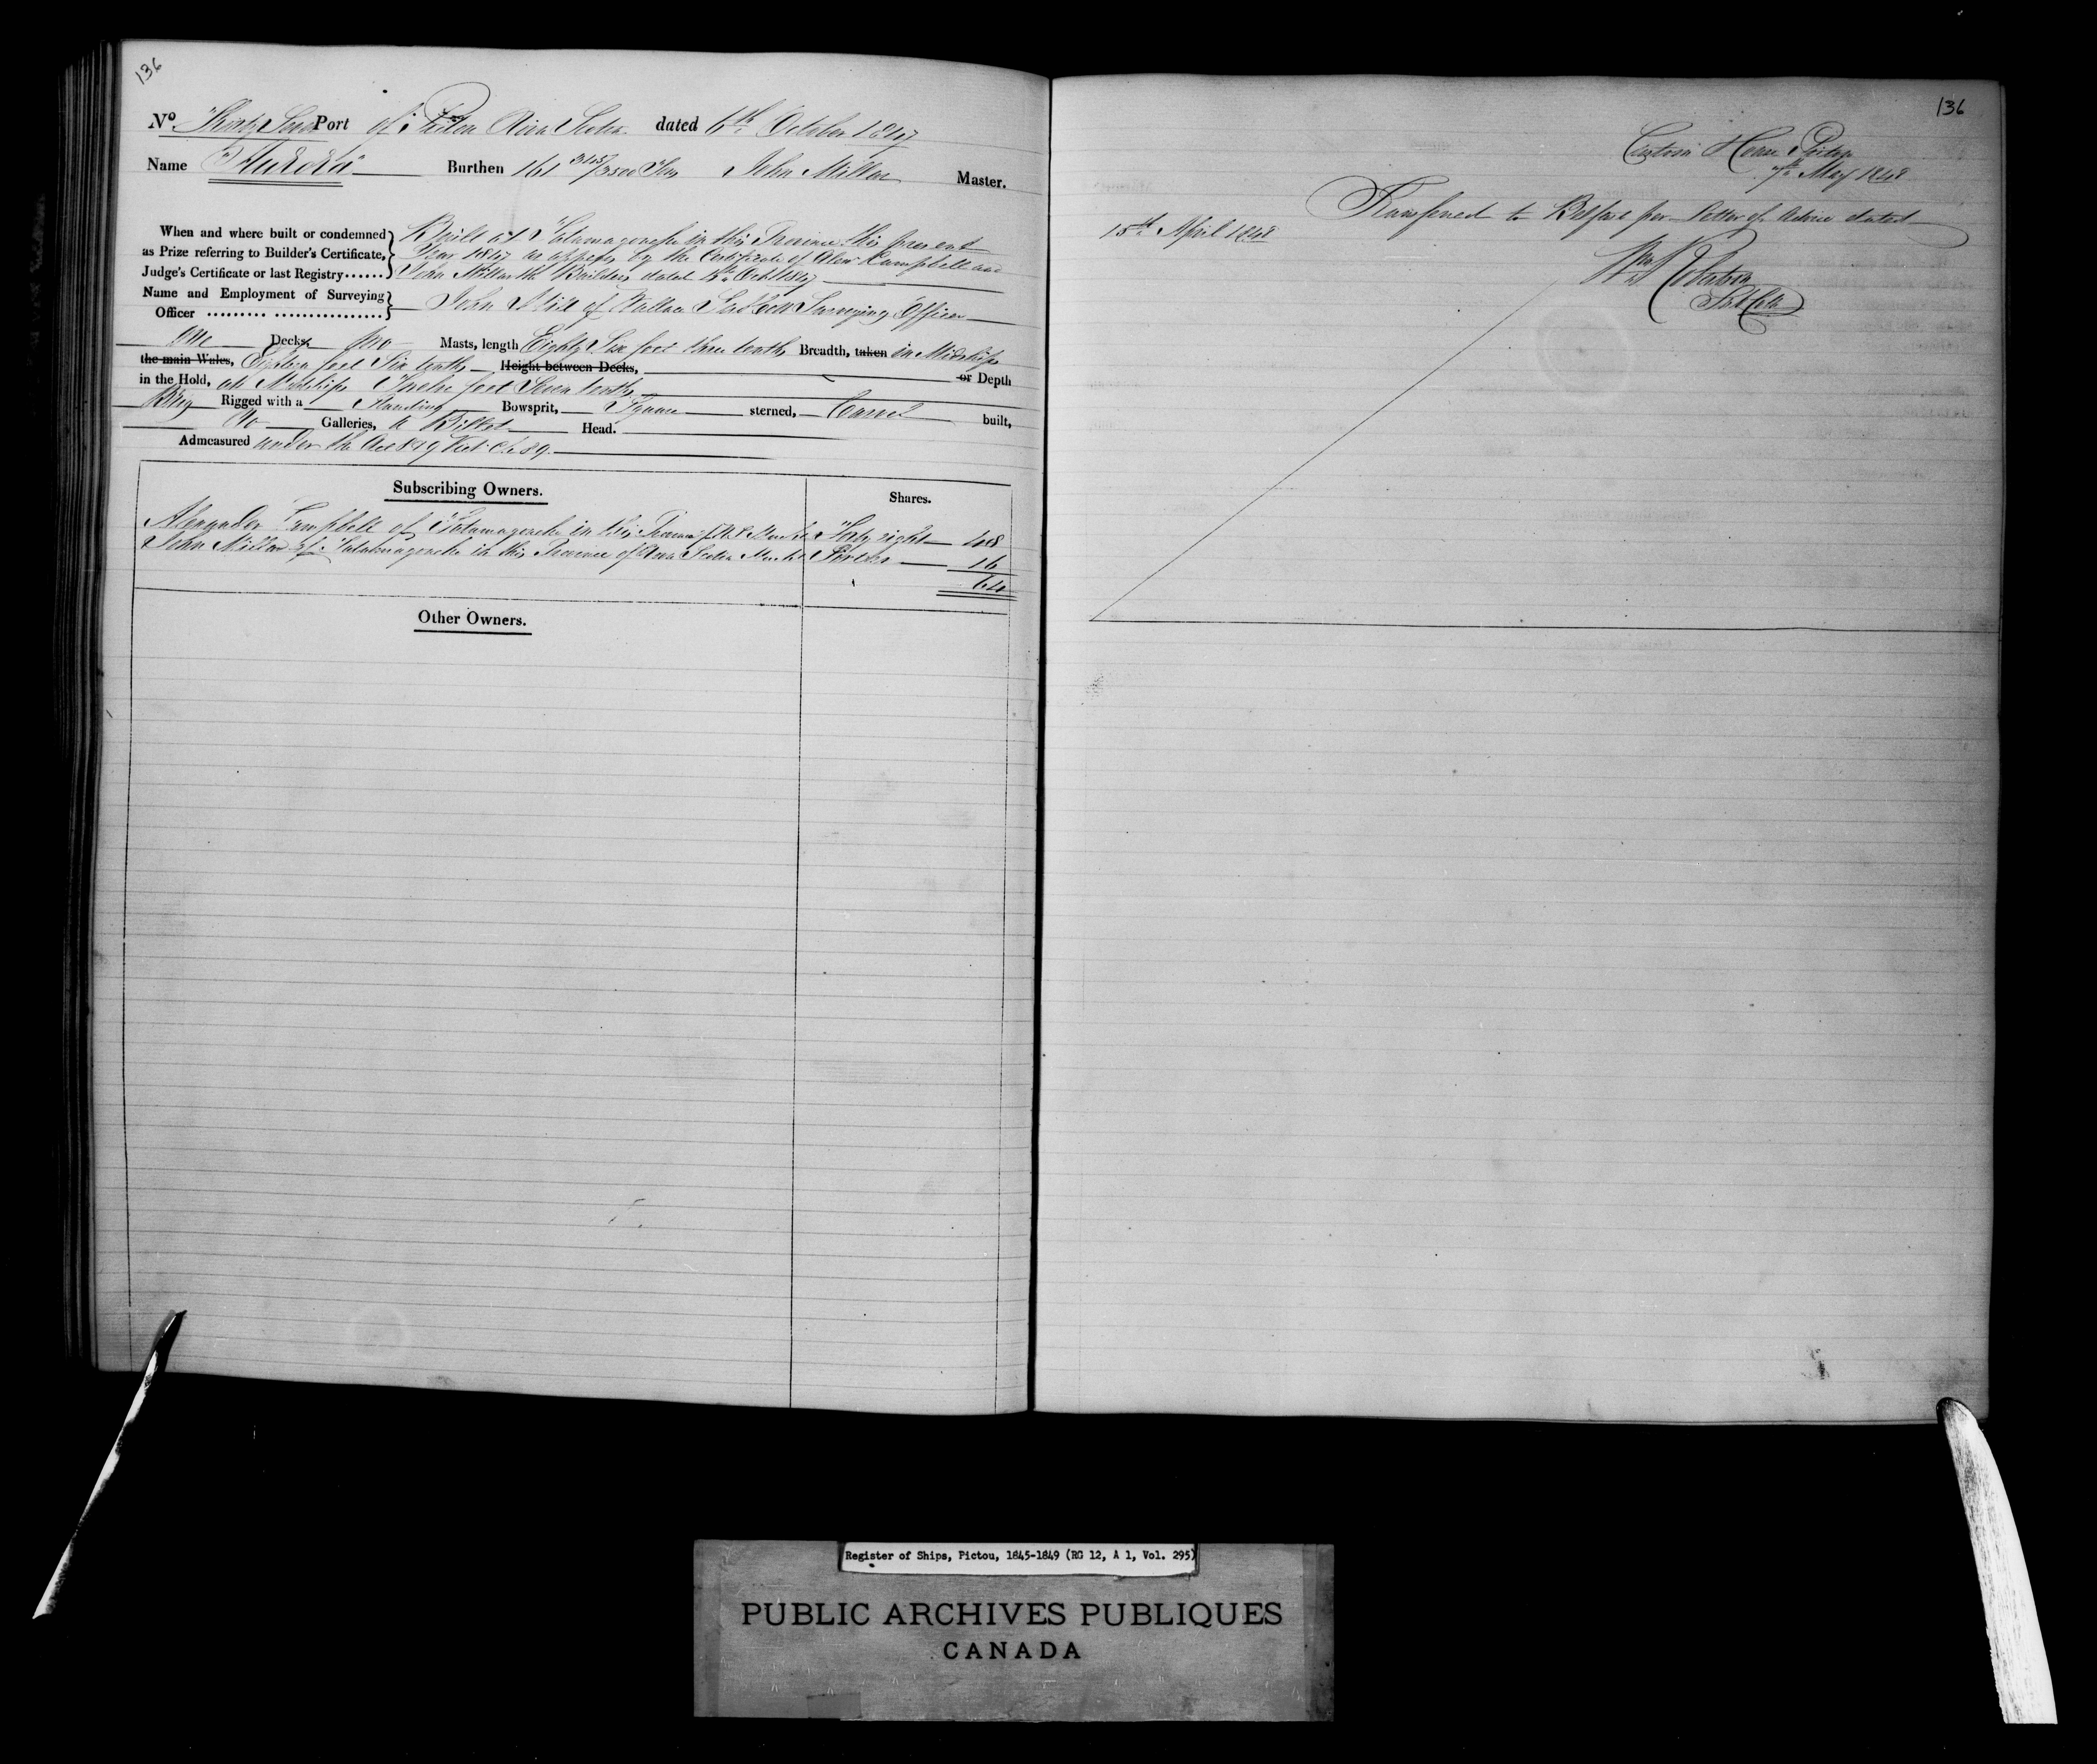 136
No. Thirty Seven Port of Pictou Nova Scotia dated 6th October 1847
Name "Aurora" Burthen 161 /3500 Tons John Millar Master.
When and where built or condemned as Prize referring to Builder's Certificate, Judge's Certificate or last Registry......
Built at Tatamagouche in this Province this present
Year 1847 as appears by the Certificate of Alexr Campbell and
John Millar the Builders dated Octr 1847
Name and Employment of Surveying Officer ......... ................
John of Wallace Surveying Officer
One Decks, Two Masts, length Eighty Six feet three tenths Breadth, taken in Midships
the main Wales, Eighteen feet Six tenths Height between Decks, or Depth
in the Hold, at Midships Twelve feet Seven tenths
Brig Rigged with a Standing Bowsprit, Square sterned, Carvel built,
No Galleries, a Billet Head.
Admeasured under the Act 8 & 9 Vict. Ch. 89.
Subscribing Owners. Shares.
Alexander Campbell of Tatamagouche in this Province of N.S. Mercht Forty eight 48
John Millar of Tatamagouche in this Province of Nova Scotia Mercht Sixteen 16
64
Other Owners.
136
Custom House Pictou
7th May 1848
Transferred to Belfast per Letter of Advice dated
15th April 1848
Wm Robertson
Register of Ships, Pictou, 1845-1849 (RG 12, A 1, Vol. 295)
PUBLIC ARCHIVES PUBLIQUES
CANADA